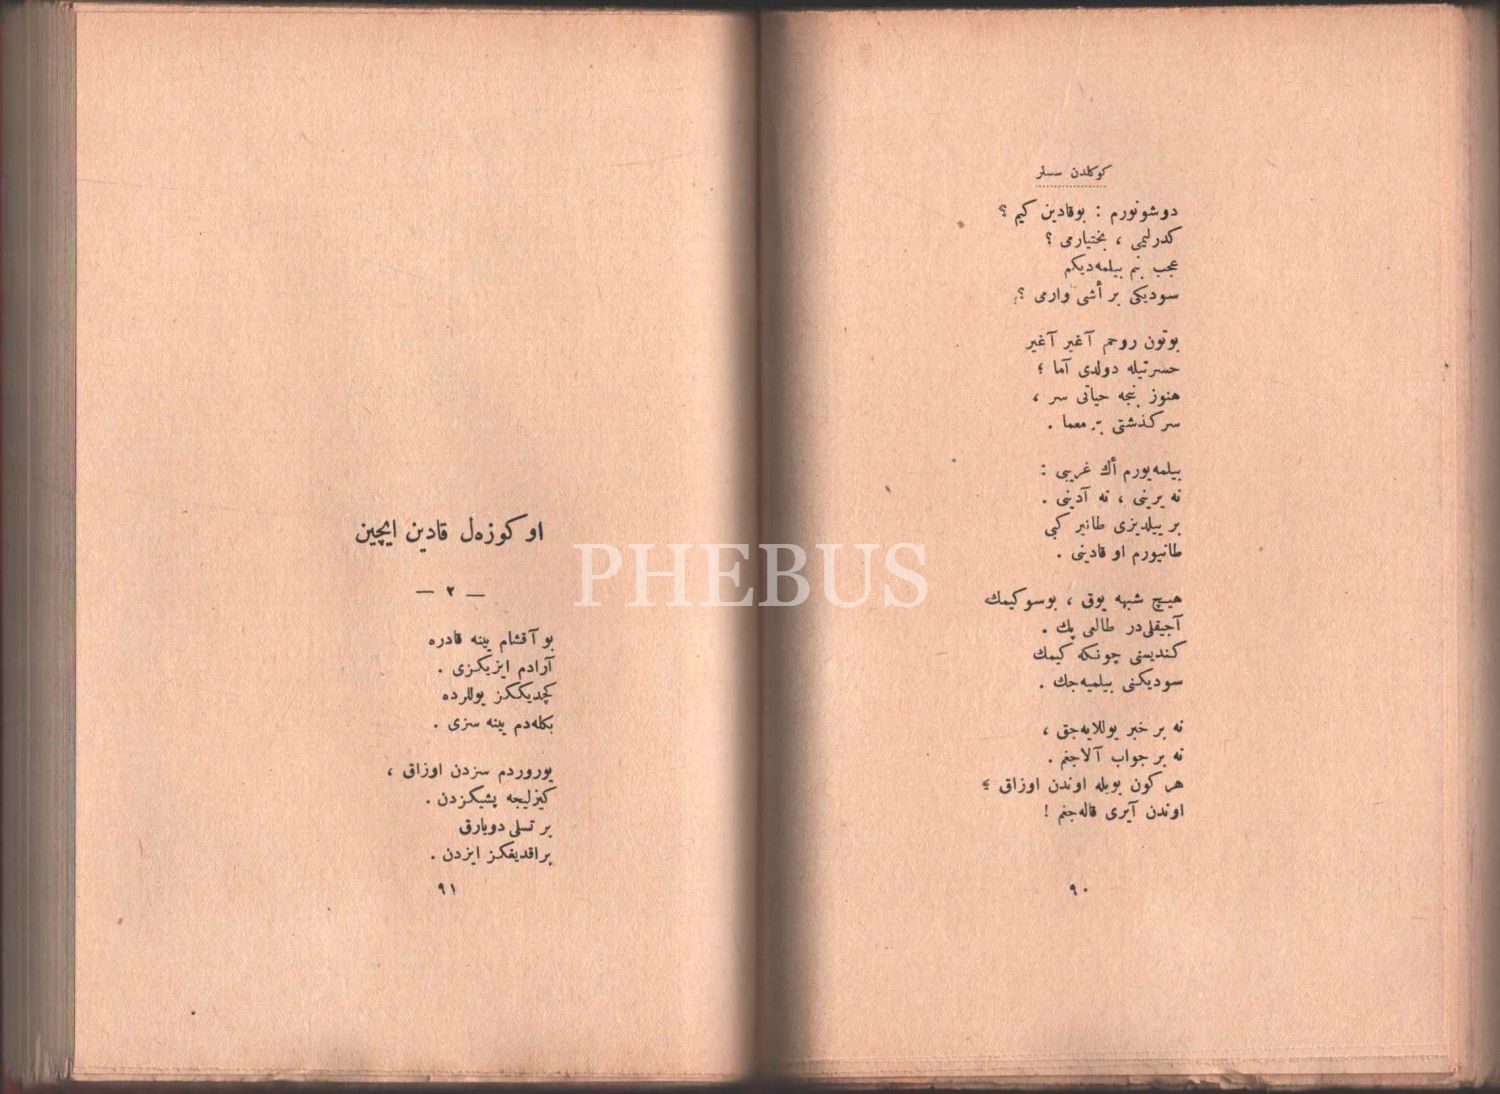 كوكلدن سسلر
دوشونورم : بوقادين كيم ؟
كدرليمى ، بختيارمى ؟
عجب بنم بيلمه‌ديكم
سوديكى بر أشى وارمى ؟
بوتون روحم آغير آغير
حسرتيله دولدى آما ؛
هنوز بنجه حياتى سر ،
سركذشتى بر معما .
بيلمه‌يورم أك غريبى :
نه يرينى ، نه آدينى .
بر ييلديزى طانير كبى
طانيورم او قادينى .
هيچ شبهه يوق ، بوسوكيمك
آجيقلى‌در طالعى پك .
كنديسنى چونكه كيمك
سوديكنى بيلميه‌جك .
نه بر خبر يوللايه‌جق ،
نه بر جواب آلاجغم .
هر كون بويله اوندن اوزاق
اوندن آيرى قاله‌جغم !
٩٠
او كوزه‌ل قادين ايچين
— ٢ —
بو آقشام يينه قادره
آرادم ايزيكزى .
كچديككز يوللرده
بكله‌دم يينه سزى .
يوروردم سزدن اوزاق ،
كيزليجه پشيكزدن .
بر تسلى دويارق
براقديغكز ايزدن .
٩١
PHEBUS